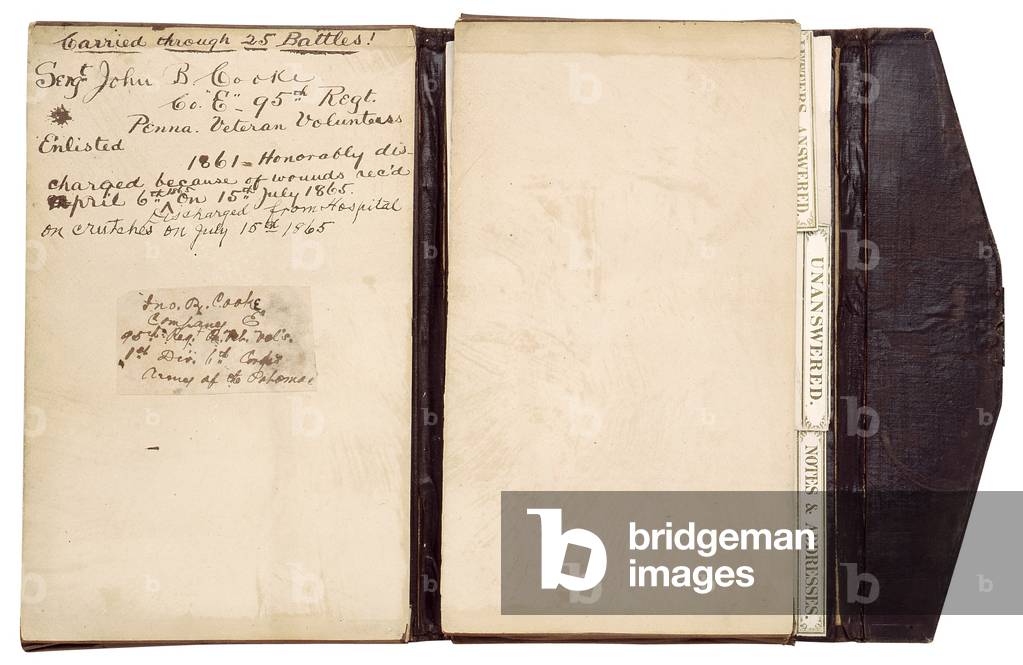 Carried through 25 Battles!
Sergt John B Cooke
Co. "E" - 95th Regt.
Penna. Veteran Volunteers
Enlisted
1861 - Honorably dis-
charged because of wounds rec'd
April 6th 1865 on 15th July 1865.
Discharged from Hospital
on crutches on July 15th 1865
Jno. B. Cooke
Company E
95th Reg. Vol's.
1st Div. 6th Corps
Army of the Potomac
LETTERS ANSWERED.
UNANSWERED.
NOTES & ADDRESSES.
b bridgeman
images